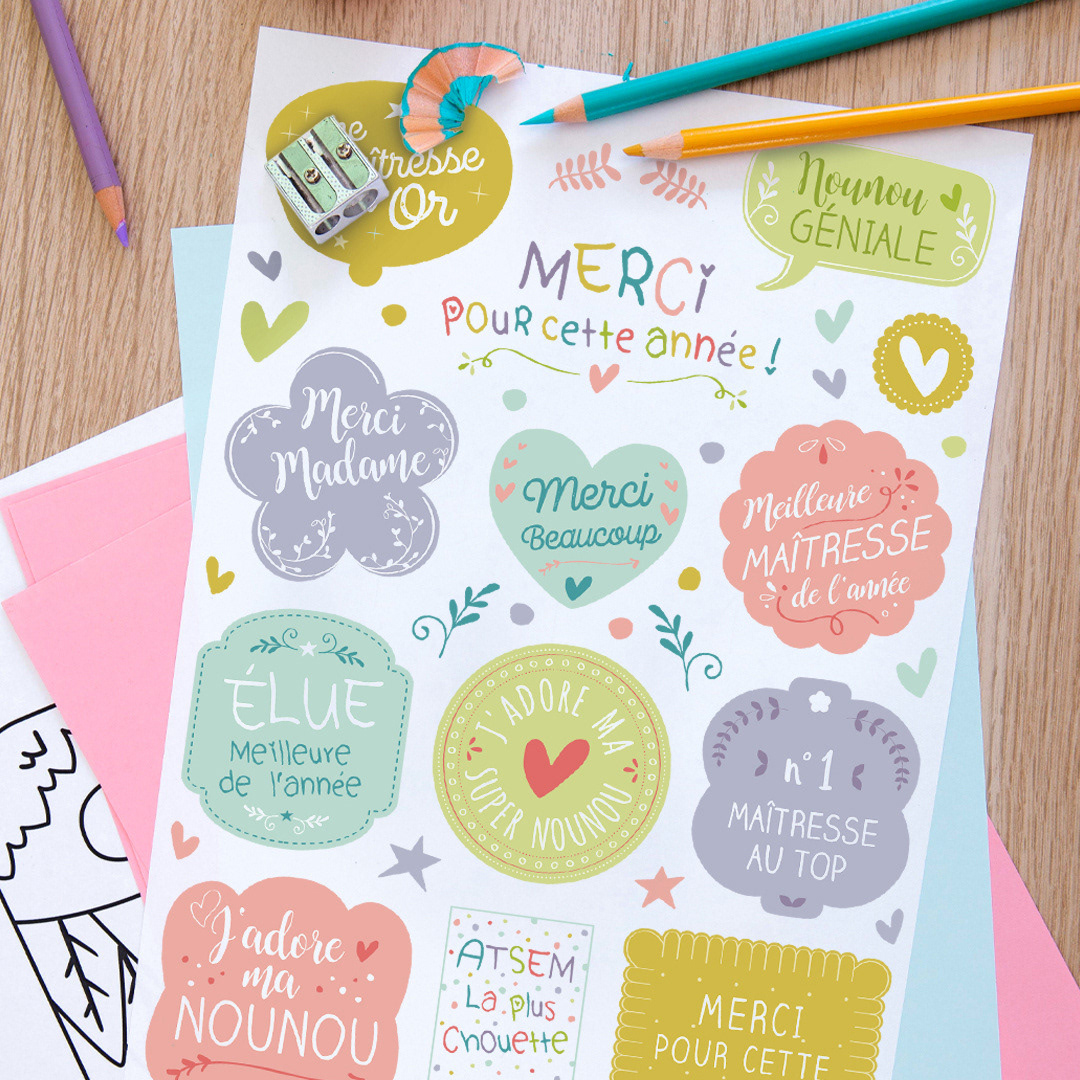 Or
Nounou
GÉNIALE
MERCi
POUR cette année !
Merci
Madame
Merci
Beaucoup
Meilleure
MAÎTRESSE
de l'année
ÉLUE
Meilleure
de l'année
J'ADORE MA
SUPER NOUNOU
n°1
MAÎTRESSE
AU TOP
J'adore
ma
NOUNOU
ATSEM
La plus
Chouette
MERCI
POUR CETTE